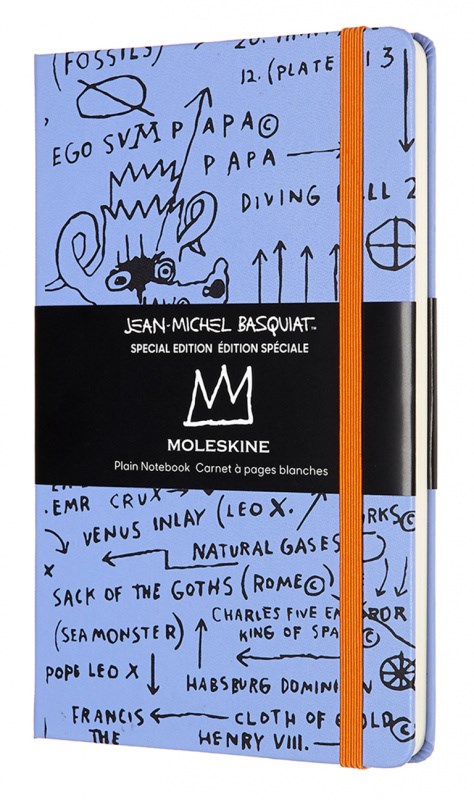 (FOSSILS)
12. (PLATE 13
EGO SVM PAPA©
PAPA
DIVING
JEAN-MICHEL BASQUIAT™
SPECIAL EDITION ÉDITION SPÉCIALE
MOLESKINE
Plain Notebook Carnet à pages blanches
.EMR CRUX
VENUS INLAY (LEO X.
NATURAL GASES
X
SACK OF THE GOTHS (ROME©)
CHARLES FIVE
(SEA MONSTER)
KING OF
POPE LEO X
HABSBURG
FRANCIS
CLOTH OF
THE
HENRY VIII.